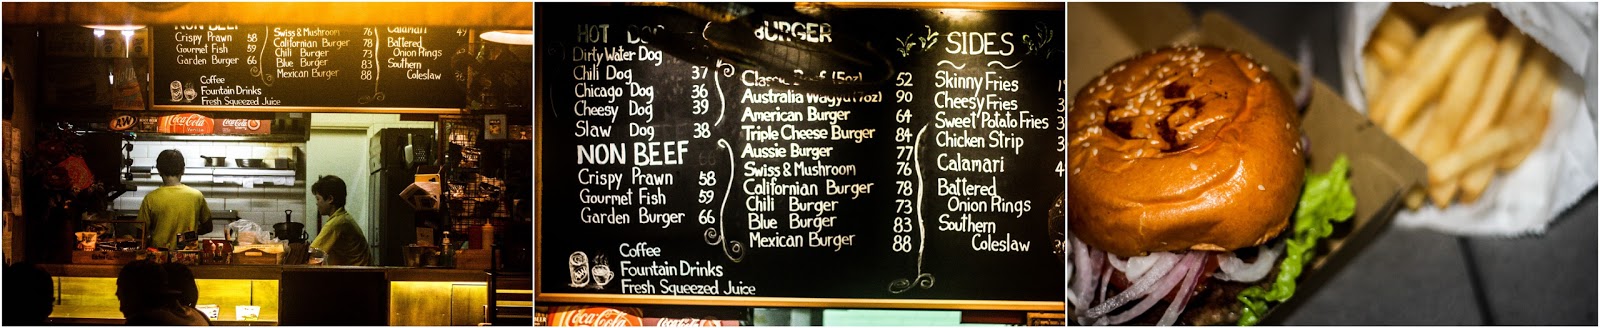 NON BEEF
Crispy Prawn 58
Gourmet Fish 59
Garden Burger 66
Swiss & Mushroom 76
Californian Burger 78
Chili Burger 73
Blue Burger 83
Mexican Burger 88
Calamari
Battered
Onion Rings
Southern
Coleslaw
Coffee
Fountain Drinks
Fresh Squeezed Juice
A&W
Coca-Cola
Coca-Cola
HOT DOG
Dirty Water Dog
Chili Dog 37
Chicago Dog 36
Cheesy Dog 39
Slaw Dog 38
NON BEEF
Crispy Prawn 58
Gourmet Fish 59
Garden Burger 66
Coffee
Fountain Drinks
Fresh Squeezed Juice
BURGER
Classic Beef (5oz) 52
Australia Wagyu (7oz) 90
American Burger 64
Triple Cheese Burger 84
Aussie Burger 77
Swiss & Mushroom 76
Californian Burger 78
Chili Burger 73
Blue Burger 83
Mexican Burger 88
SIDES
Skinny Fries
Cheesy Fries
Sweet Potato Fries
Chicken Strip
Calamari
Battered
Onion Rings
Southern
Coleslaw
Coca-Cola
Coca-Cola